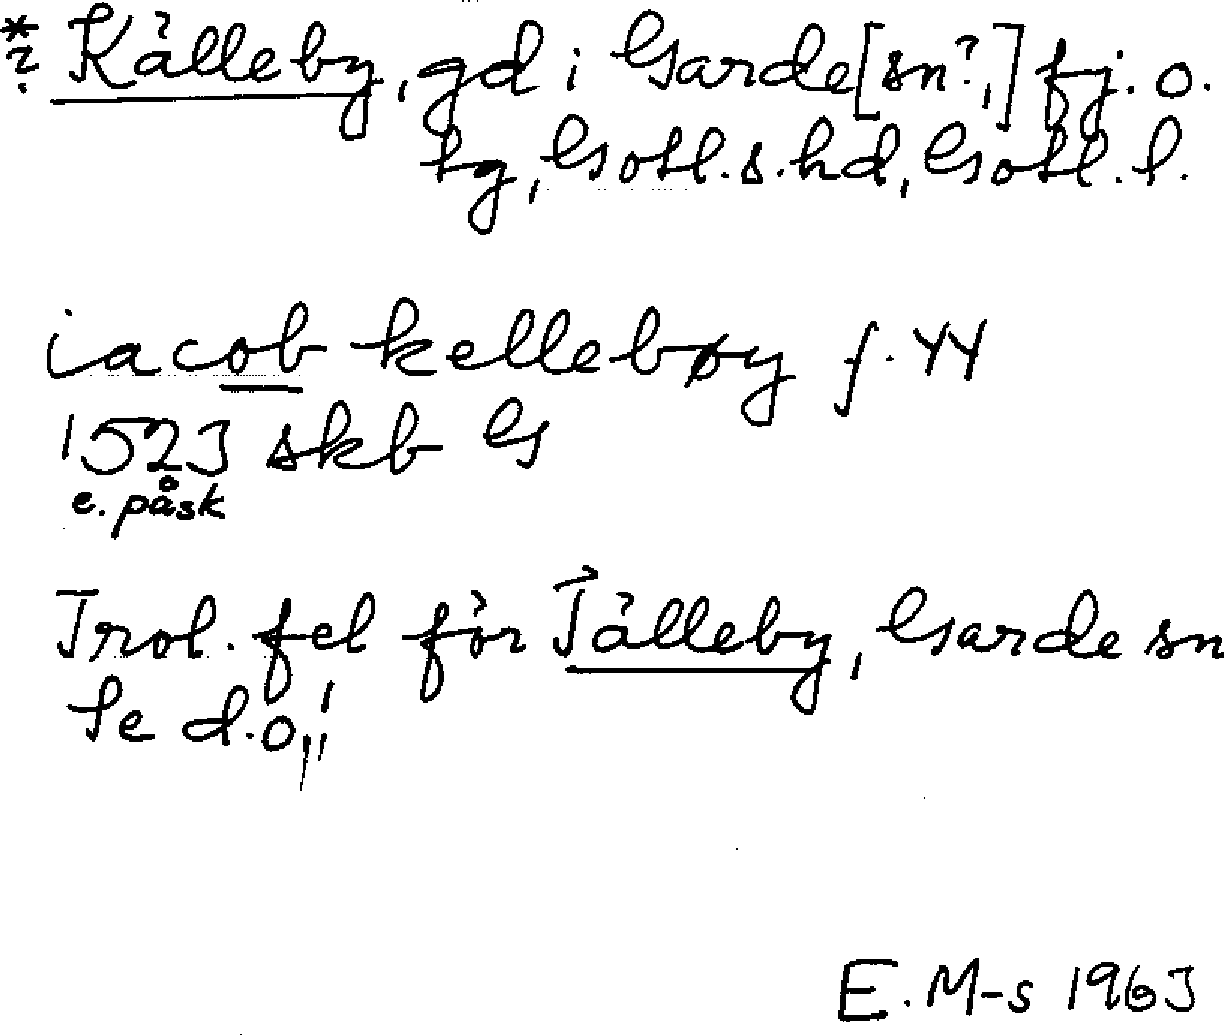 *? Källeby, gd i Garde [sn?,] fj. o.
tg, Gotl.s.hd, Gotl.l.
iacob kellebøy f. 44
1523 skb G
e. påsk
Trol. fel för Tälleby, Garde sn
Se d.o,,!
E. M-s 1963